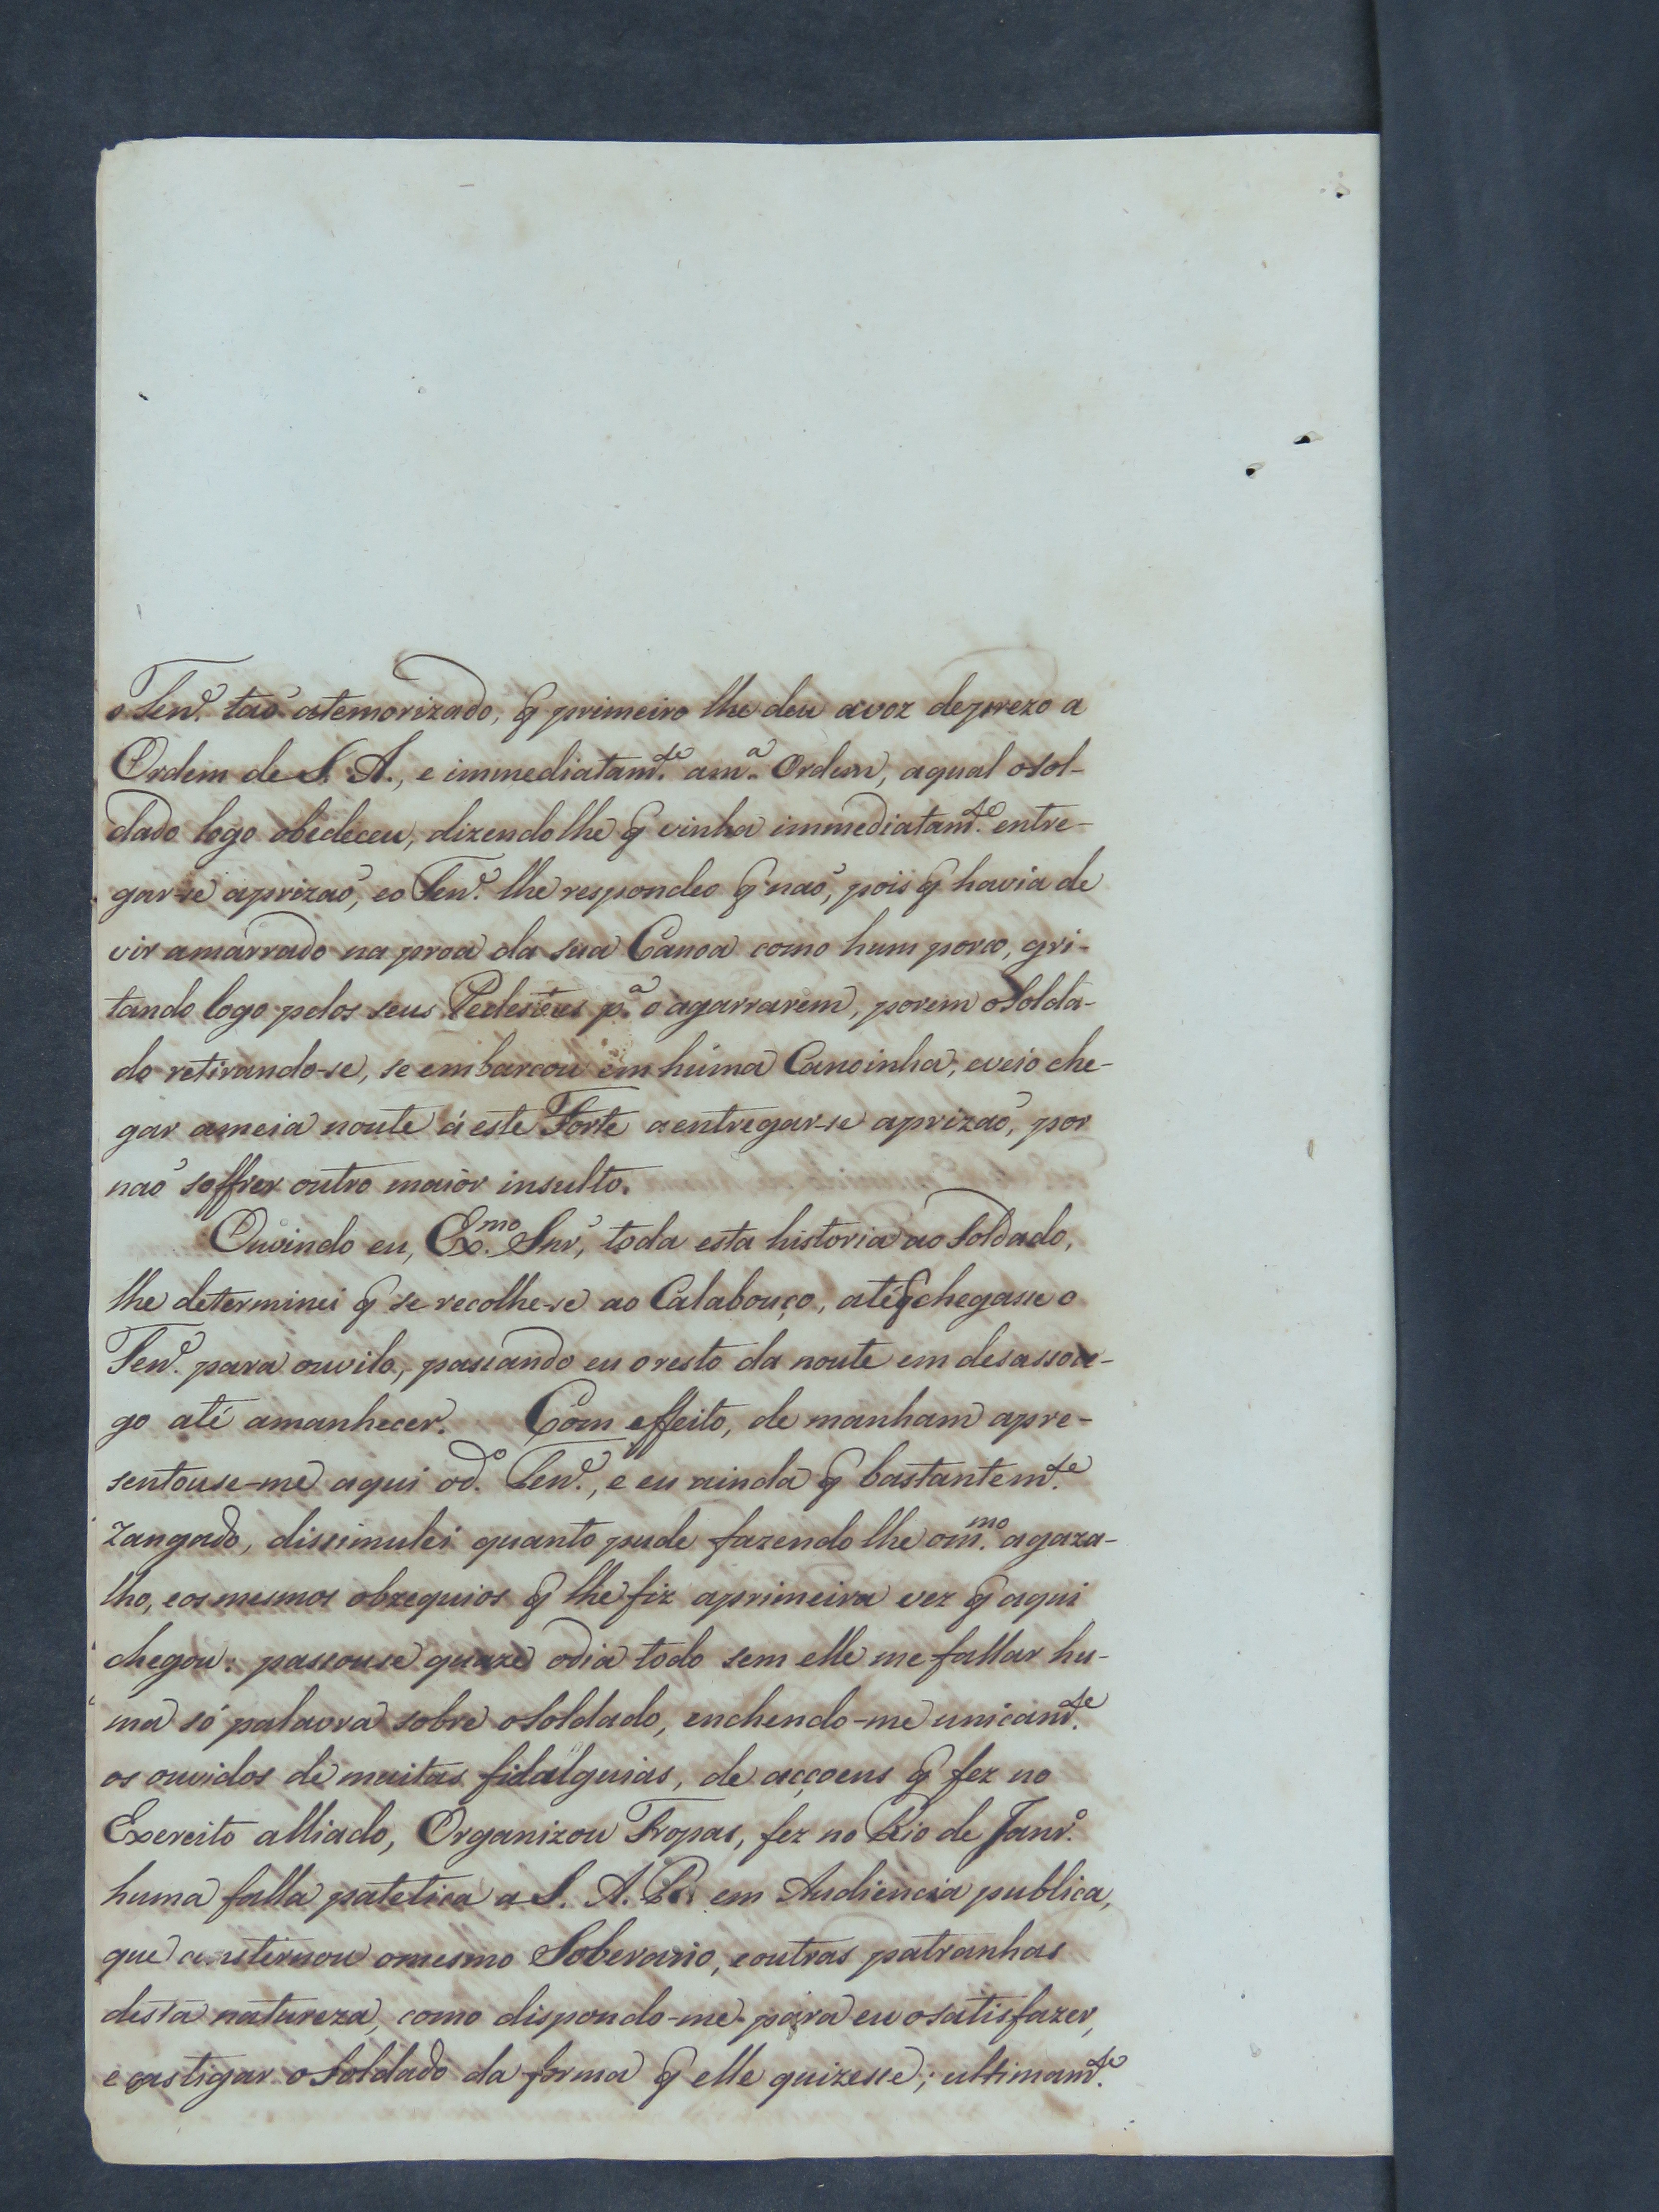 o Ten.e taõ atemorizado, q̃ primeiro lhe deu avoz deprezo a
Ordem de S. A., e immediatam.te am.a Ordem, aqual osol-
dado logo obedeceu, dizendolhe q̃ vinha immediatam.te entre-
gar-se aprizaõ, eo Ten.e lhe respondeo q̃ naõ, pois q̃ havia de
vir amarrado na proa da sua Canoa como hum porco, gri-
tando logo pelos seus Pedestres p.a o agarrarem, porem oSolda-
do retirando-se, se embarcou em huma Canoinha, eveio che-
gar ameia noute á este Forte aentregar-se aprizaõ, por
naõ soffrer outro maior insulto.
Ouvindo eu, Ex.mo Snr, toda esta historia ao Soldado,
lhe determinei q̃ se recolhe-se ao Calabouço, atéq̃chegasse o
Ten.e para ouvilo, passando eu oresto da noute em desassoce-
go até amanhecer. Com effeito, de manham apre-
sentouse-me aqui od.o Ten.e, e eu ainda q̃ bastantem.te
zangado, dissimulei quanto pude fazendolhe om.mo agaza-
lho, eos mesmos obzequios q̃ lhe fiz aprimeira vez q̃ aqui
chegou: passouse quaze odia todo sem elle me fallar hu-
ma só palavra sobre osoldado, enchendo-me unicam.te
os ouvidos de muitas fidalguias, de acçoens q̃ fez no
Exercito alliado, Organizou Tropas, fez no Rio de Janr.o
huma falla patetica a S. A. R. em Audiencia publica,
que consternou omesmo Soberano, eoutras patranhas
desta natureza, como dispondo-me para eu osatisfazer,
e castigar o Soldado da forma q̃ elle quizesse; ultimam.te